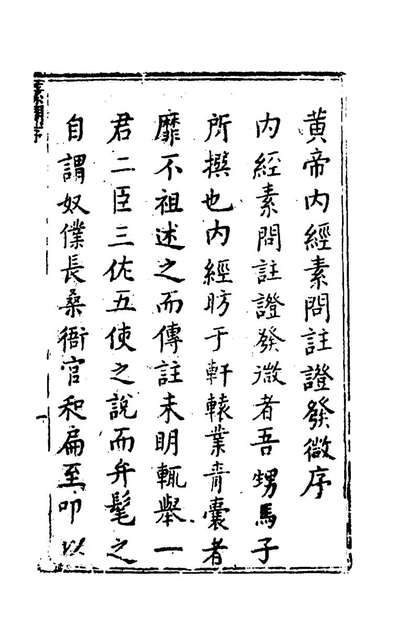 黄帝内經素問註證發微序
内經素問註證發微者吾甥馬子
所撰也内經昉于軒轅業青囊者
靡不祖述之而傳註未明輒舉一
君二臣三佐五使之說而弁髦之
自謂奴僕長桑衙官和扁至叩以